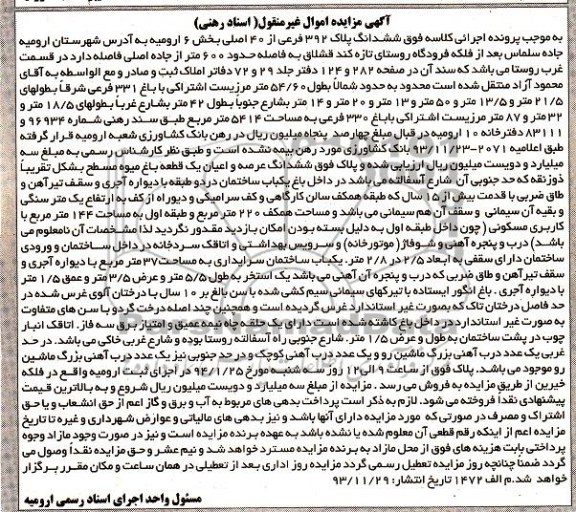 آگهی مزایده اموال غیرمنقول( اسناد رهنی)
به موجب پرونده اجرائی کلاسه فوق ششدانگ پلاک ۳۹۲ فرعی از ۴۰ اصلی بخش ۶ ارومیه به آدرس شهرستان ارومیه
جاده سلماس بعد از فلکه فرودگاه روستای تازه کند قشلاق به فاصله حدود ۶۰۰ متر از جاده اصلی فاصله دارد در قسمت
غرب روستا می باشد که سند آن در صفحه ۲۸۲ و ۱۲۴ دفتر جلد ۲۹ و ۷۲ دفاتر املاک ثبت و صادر و مع الواسطه به آقای
محمود آزاد منتقل شده است محدود به حدود شمالاً بطول ۵۴/۶۰ متر مرزیست اشتراکی با باغ ۳۳۱ فرعی شرقاً بطولهای
۲۱/۵ متر و ۱۳/۵ متر و ۵۰ متر و ۱۳ متر و ۲۰ متر و ۱۴ متر بشارع جنوبا بطول ۴۲ متر بشارع غرباً بطولهای ۱۸/۵ متر و
۳۲ متر و ۸۷ متر مرزیست اشتراکی باباغ ۳۳۰ فرعی به مساحت ۵۴۱۴ متر مربع طبق سند رهنی شماره ۹۶۹۳۴ و
۸۳۱۱۱ دفترخانه ۱۰ ارومیه در قبال مبلغ چهارصد و پنجاه میلیون ریال در رهن بانک کشاورزی شعبه ارومیه قرار گرفته
طبق اعلامیه ۲۰۷۱-۹۳/۱۱/۲۳ بانک کشاورزی مورد رهن بیمه نشده است و طبق نظر کارشناس رسمی به مبلغ سه
میلیارد و دویست میلیون ریال ارزیابی شده و پلاک فوق ششدانگ عرصه و اعیان یک قطعه باغ میوه مسطح بشکل تقریباً
ذوزنقه که حد جنوبی آن شارع آسفالته می باشد در داخل باغ یکباب ساختمان در دو طبقه با دیواره آجری و سقف تیرآهن و
طاق ضربی با قدمت بیش از ۱۵ سال که طبقه همکف سالن کارگاهی و کف سرامیکی و دیوراه از کف به ارتفاع یک متر سنگی
و بقیه آن سیمانی و سقف آن هم سیمانی می باشد و مساحت همکف ۲۲۰ متر مربع و طبقه اول به مساحت ۱۴۴ متر مربع با
کاربری مسکونی ( چون داخل طبقه اول به دلیل بسته بودن امکان بازدید مقدور نگردید لذا مشخصات آن نامعلوم می
باشد) درب و پنجره آهنی و شوفاژ (موتورخانه) و سرویس بهداشتی و اتاقک سردخانه در داخل ساختمان و ورودی
ساختمان دارای سقفی به ابعاد ۲/۵ در ۲/۸ متر. یکباب ساختمان سرایداری به مساحت ۳۷ متر مربع با دیواره آجری و
سقف تیرآهن و طاق ضربی که درب و پنجره آن آهنی می باشد یک استخر به طول ۵/۵ متر و عرض ۳/۵ متر و عمق ۱/۵ متر
با دیواره آجری. باغ انگور ایستاده با تیرکهای سیمانی سیم کشی شده با سن بالغ بر ۱۰ سال با درختان آلوی غرس شده در
حد فاصل درختان تاک که بصورت غیر استاندارد غرس گردیده است و همچنین چند اصله درخت گردو با سن های متفاوت
به صورت غیر استاندارد در داخل باغ کاشته شده است دارای یک حلقه چاه نیمه عمیق و امتیاز برق سه فاز. اتاقک انبار
چوب در پشت ساختمان به طول و عرض ۱/۵ متر. شارع جنوبی راه آسفالته روستا بوده و شارع غربی خاکی می باشد. در حد
غربی یک عدد درب آهنی بزرگ ماشین رو و یک عدد درب آهنی کوچک و در حد جنوبی نیز یک عدد درب آهنی بزرگ ماشین
رو موجود می باشد. پلاک فوق از ساعت ۹ الی ۱۲ روز سه شنبه مورخ ۹۴/۱/۲۵ در اجرای ثبت ارومیه واقع در فلکه
خیرین از طریق مزایده به فروش می رسد. مزایده از مبلغ سه میلیارد و دویست میلیون ریال شروع و به بالاترین قیمت
پیشنهادی نقداً فروخته می شود. لازم به ذکر است پرداخت بدهی های مربوط به آب و برق و گاز اعم از حق انشعاب و یا حق
اشتراک و مصرف در صورتی که مورد مزایده دارای آنها باشد و نیز بدهی های مالیاتی و عوارض شهرداری و غیره تا تاریخ
مزایده اعم از اینکه رقم قطعی آن معلوم شده یا نشده باشد به عهده برنده مزایده است و نیز در صورت وجود مازاد وجوه
پرداختی بابت هزینه های فوق از محل مازاد به برنده مزایده مسترد خواهد شد و نیم عشر و حق مزایده نقداً وصول می
گردد ضمناً چنانچه روز مزایده تعطیل رسمی گردد مزایده روز اداری بعد از تعطیلی در همان ساعت و مکان مقرر برگزار
خواهد شد.م الف ۱۴۷۲ تاریخ انتشار: ۹۳/۱۱/۲۹
مسئول واحد اجرای اسناد رسمی ارومیه